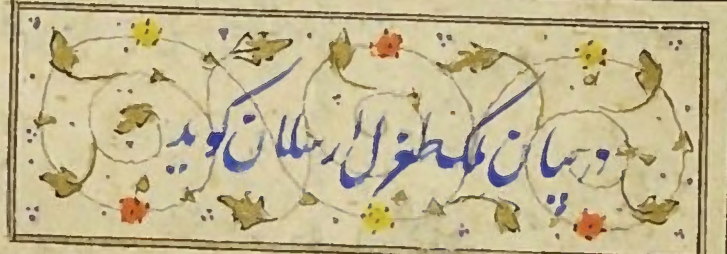 در بیان ملک طغرل ارسلان گوید